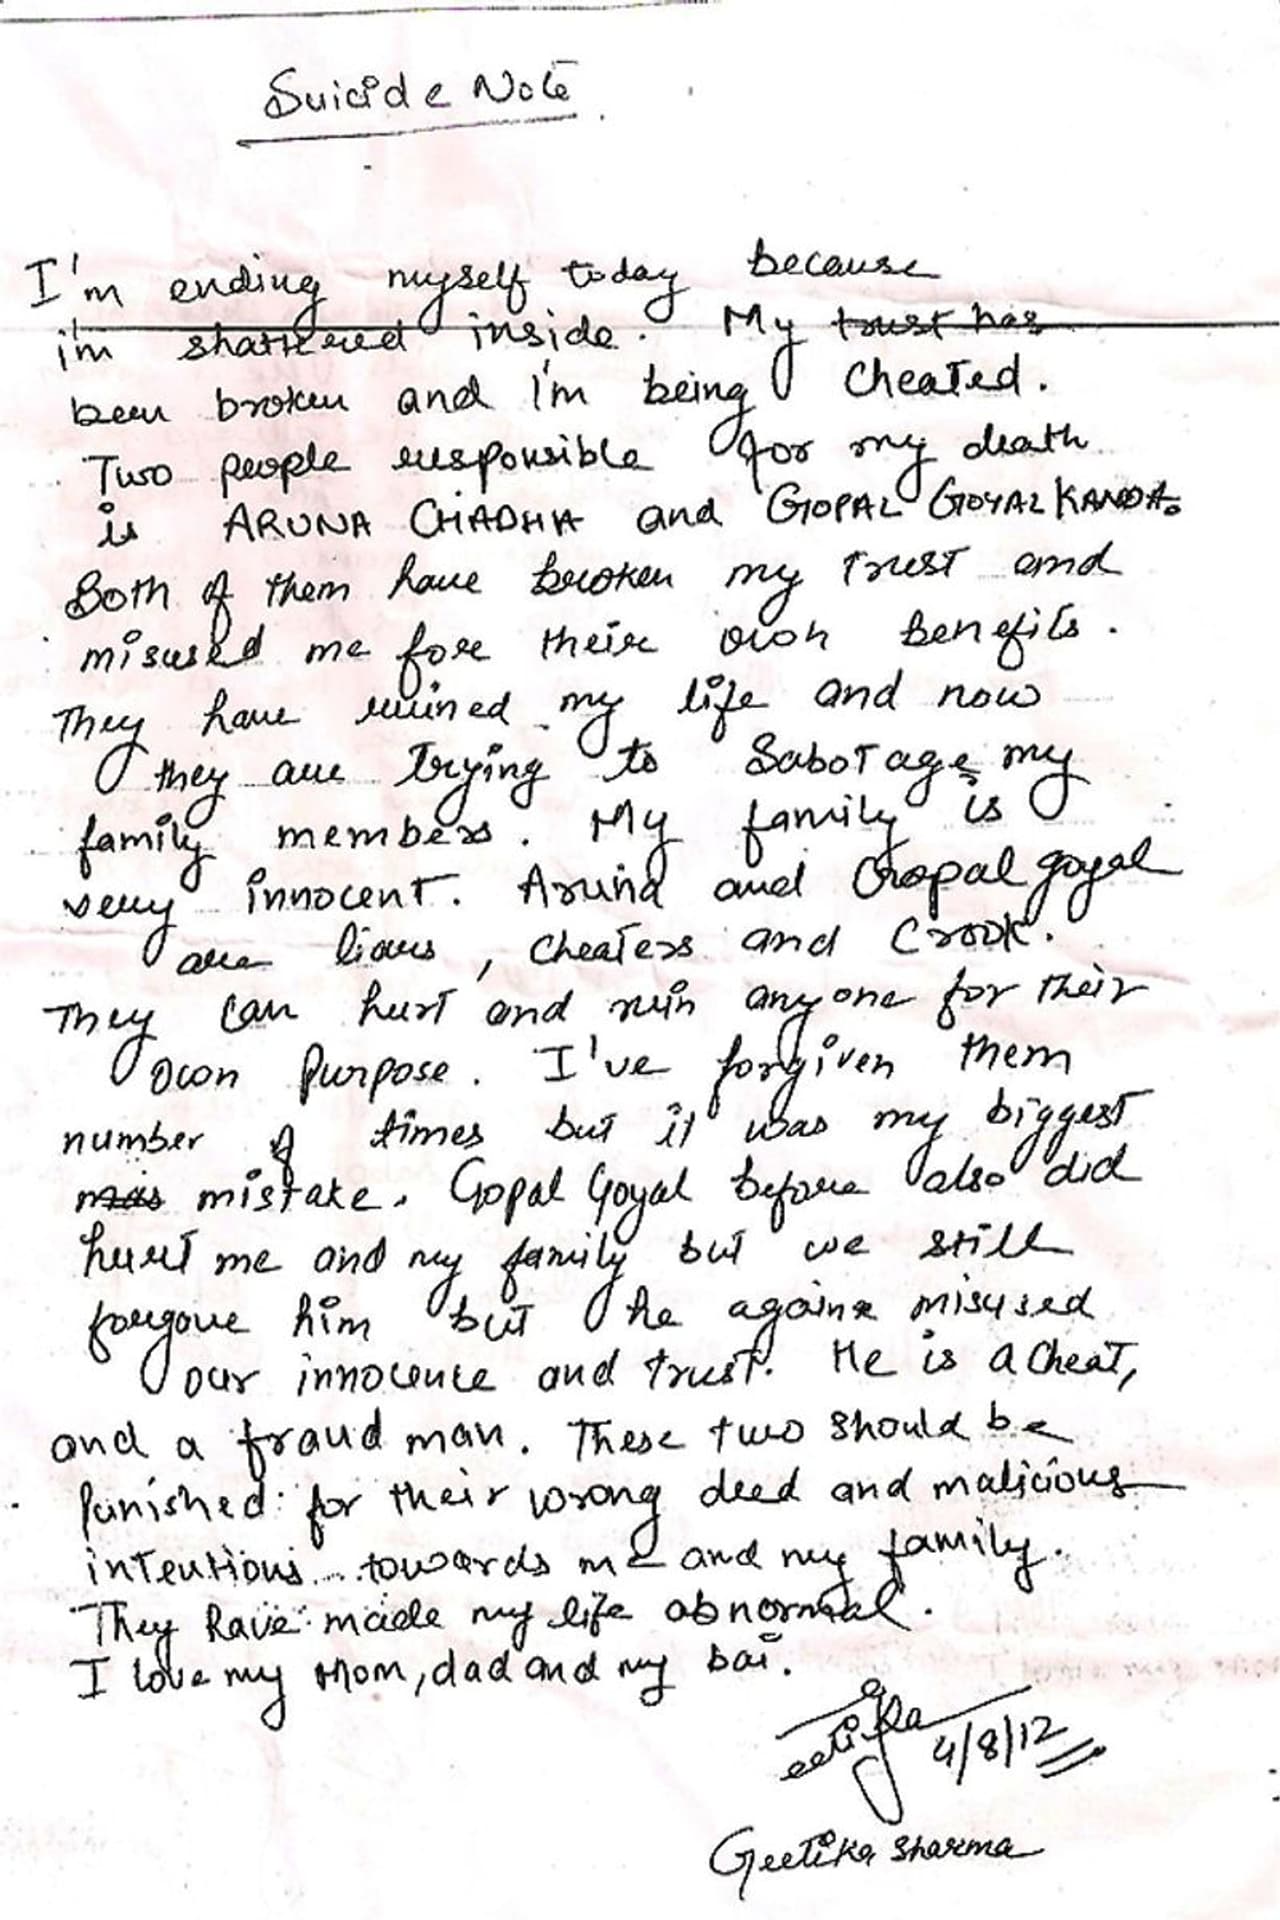 Suicide Note
I'm ending myself today because
i'm shattered inside. My trust has
been broken and I'm being cheated.
Two people responsible for my death
is ARUNA CHADHA and GOPAL GOYAL KANDA.
Both of them have broken my trust and
misused me for their own benefits.
They have ruined my life and now
they are trying to sabotage my
family members. My family is
very innocent. Aruna and Gopal goyal
are liars, cheaters and crook.
They can hurt and ruin anyone for their
own purpose. I've forgiven them
number of times but it was my biggest
mis mistake. Gopal Goyal before also did
hurt me and my family but we still
forgave him but he again misused
our innocence and trust. He is a cheat,
and a fraud man. These two should be
punished for their wrong deed and malicious
intentions towards me and my family.
They have made my life abnormal.
I love my Mom, dad and my bai.
Geetika 4/8/12
Geetika Sharma